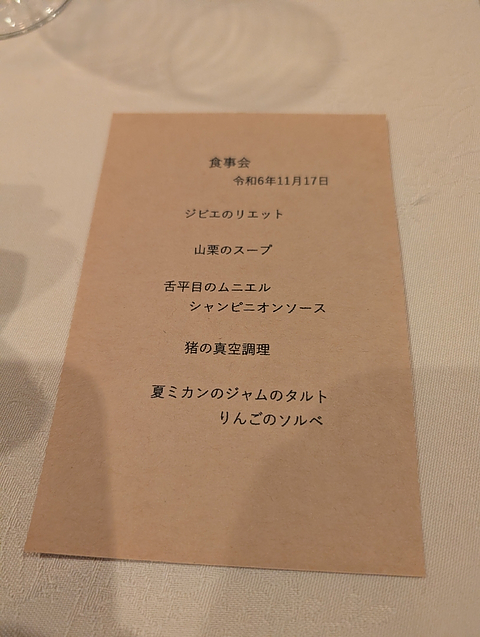 食事会
令和6年11月17日
ジビエのリエット
山栗のスープ
舌平目のムニエル
シャンピニオンソース
猪の真空調理
夏ミカンのジャムのタルト
りんごのソルベ